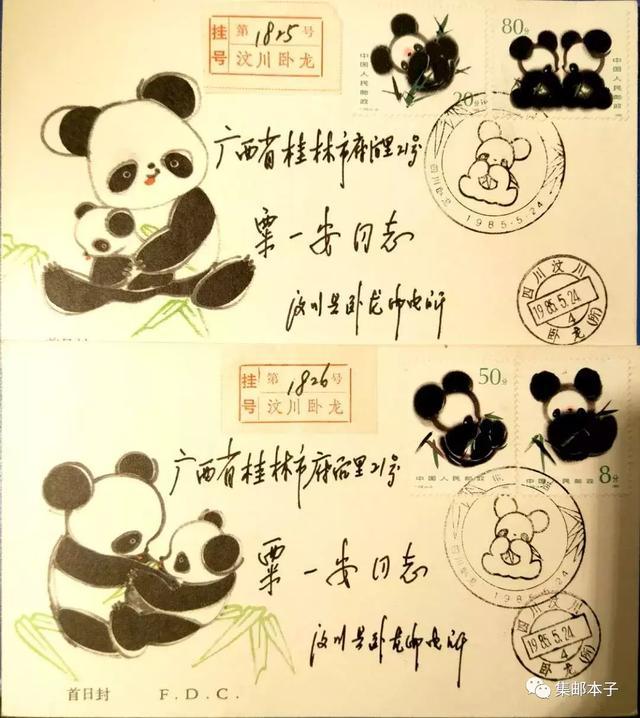 挂号
第1825号
汶川卧龙
中国人民邮政
20分
80分
中国人民邮政
广西省桂林市府后里21号
四川卧龙
1985-5.24
粟一安同志
四川汶川
1985.5.24
4
卧龙(所)
汶川县卧龙邮电所
首日封
挂号
第1826号
汶川卧龙
50分
中国人民邮政
中国人民邮政
8分
广西省桂林市府后里21号
1985-5.24
粟一安同志
四川汶川
1985.5.24
4
卧龙(所)
汶川县卧龙邮电所
首日封 F.D.C.
集邮本子